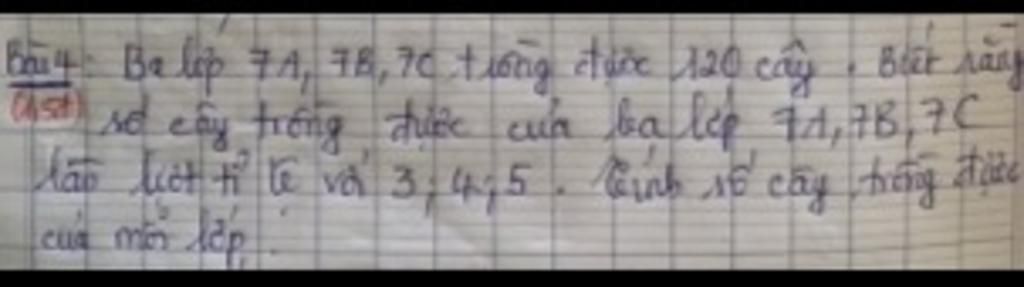 Bài 4: Ba lớp 7A, 7B, 7C trồng được 120 cây. Biết rằng
(1,5đ) số cây trồng được của ba lớp 7A, 7B, 7C
lần lượt tỉ lệ với 3; 4; 5. Tính số cây trồng được
của mỗi lớp.